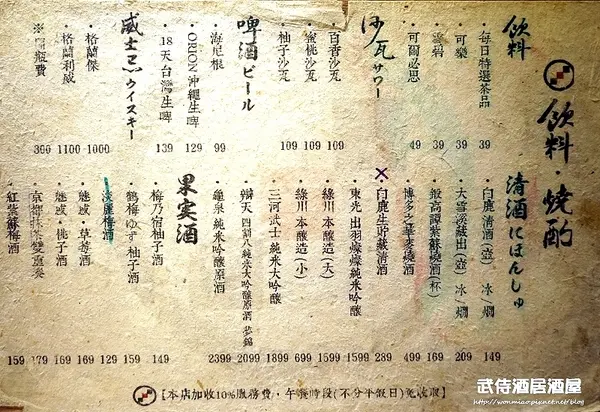 飲料・燒酌
飲料
・每日特選茶品 39
・可樂 39
・雪碧 39
・可爾必思 49
沙瓦サワー
・百香沙瓦 109
・蜜桃沙瓦 109
・柚子沙瓦 109
啤酒ビール
・海尼根 99
・ORION沖繩生啤 129
・18天台灣生啤 139
威士忌ウイスキー
・格蘭傑 1000
・格蘭利威 1100
瓶費 300
清酒にほんしゅ
・白鹿清酒(壺) 冰/燗 149
・大雪溪藏出(壺) 冰/燗 209
・鍛高譚紫蘇燒酒(杯) 169
・博多之華麥燒酒 499
・白鹿生貯藏清酒 289
・東光 出羽燦燦純米吟釀 1599
・綠川 本釀造(大) 1599
・綠川 本釀造(小) 699
・三河武士 純米大吟釀 1899
・辯天 四割八純米大吟釀原酒 2099
・龜泉 純米吟釀原酒 2399
果実酒
・梅乃宿柚子酒 149
・鶴梅ゆず 柚子酒 159
・淡麗梅酒 129
・魅惑・草莓酒 169
・魅惑・桃子酒 169
179
・紅紫蘇梅酒 159
【本店加收10%服務費，午餐時段(不分平假日)免收取】
武侍酒居酒屋
http://wonmiao.pixnet.net/blog